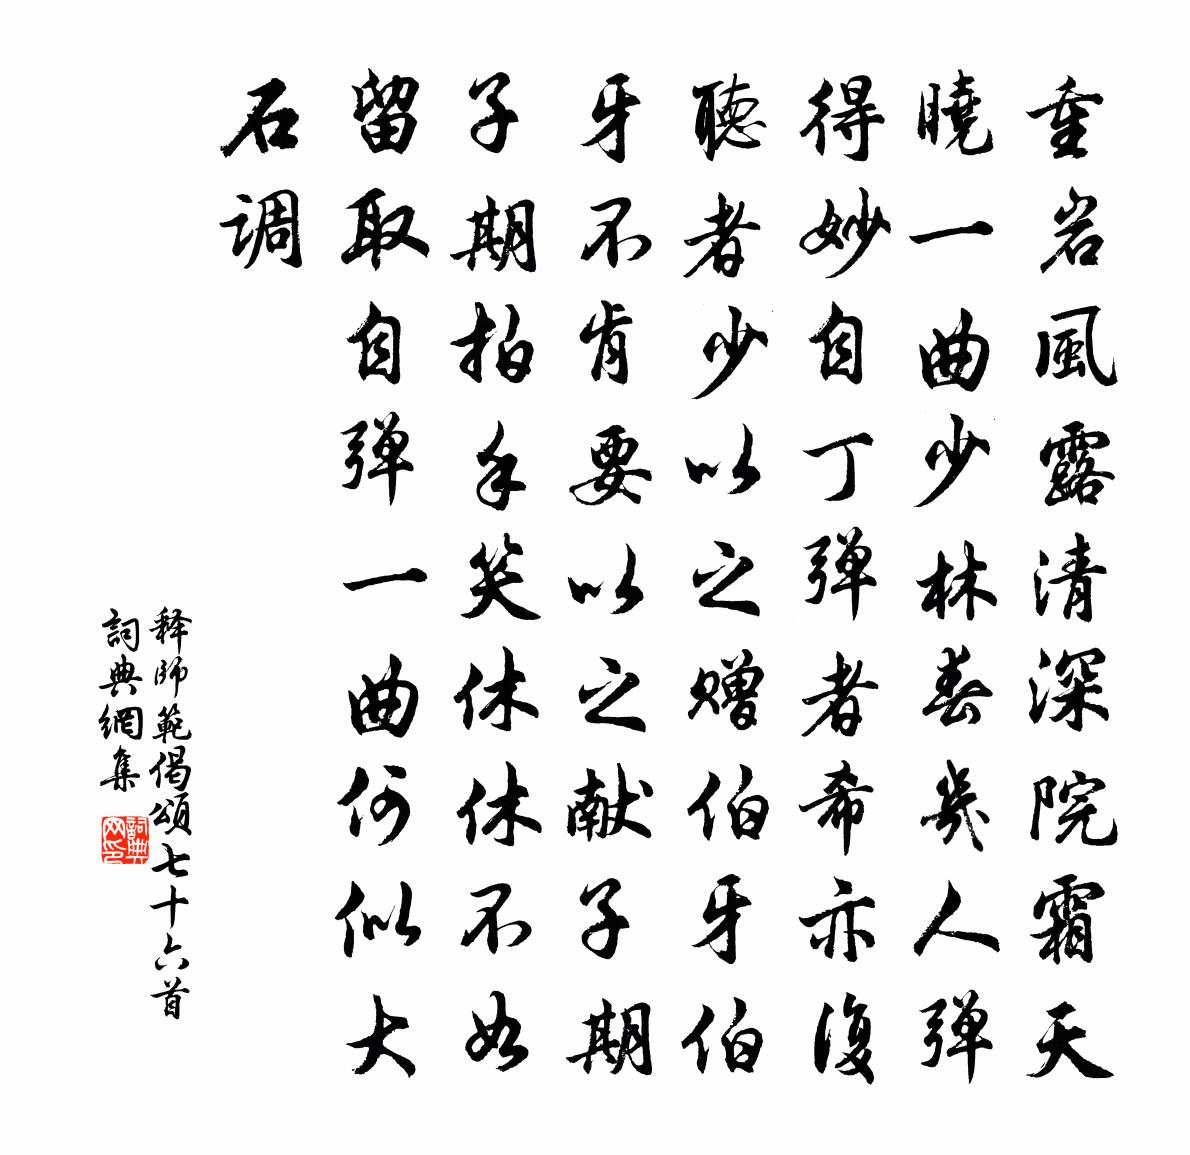 重岩風露清深院霜天
曉一曲少林春幾人弹
得妙自丁弹者希亦復
聽者少以之赠伯牙伯
牙不肯要以之献子期
子期拍手笑休休不如
留取自弹一曲何似大
石调
释師範偈頌七十六首
詞典網集
詞典
网印